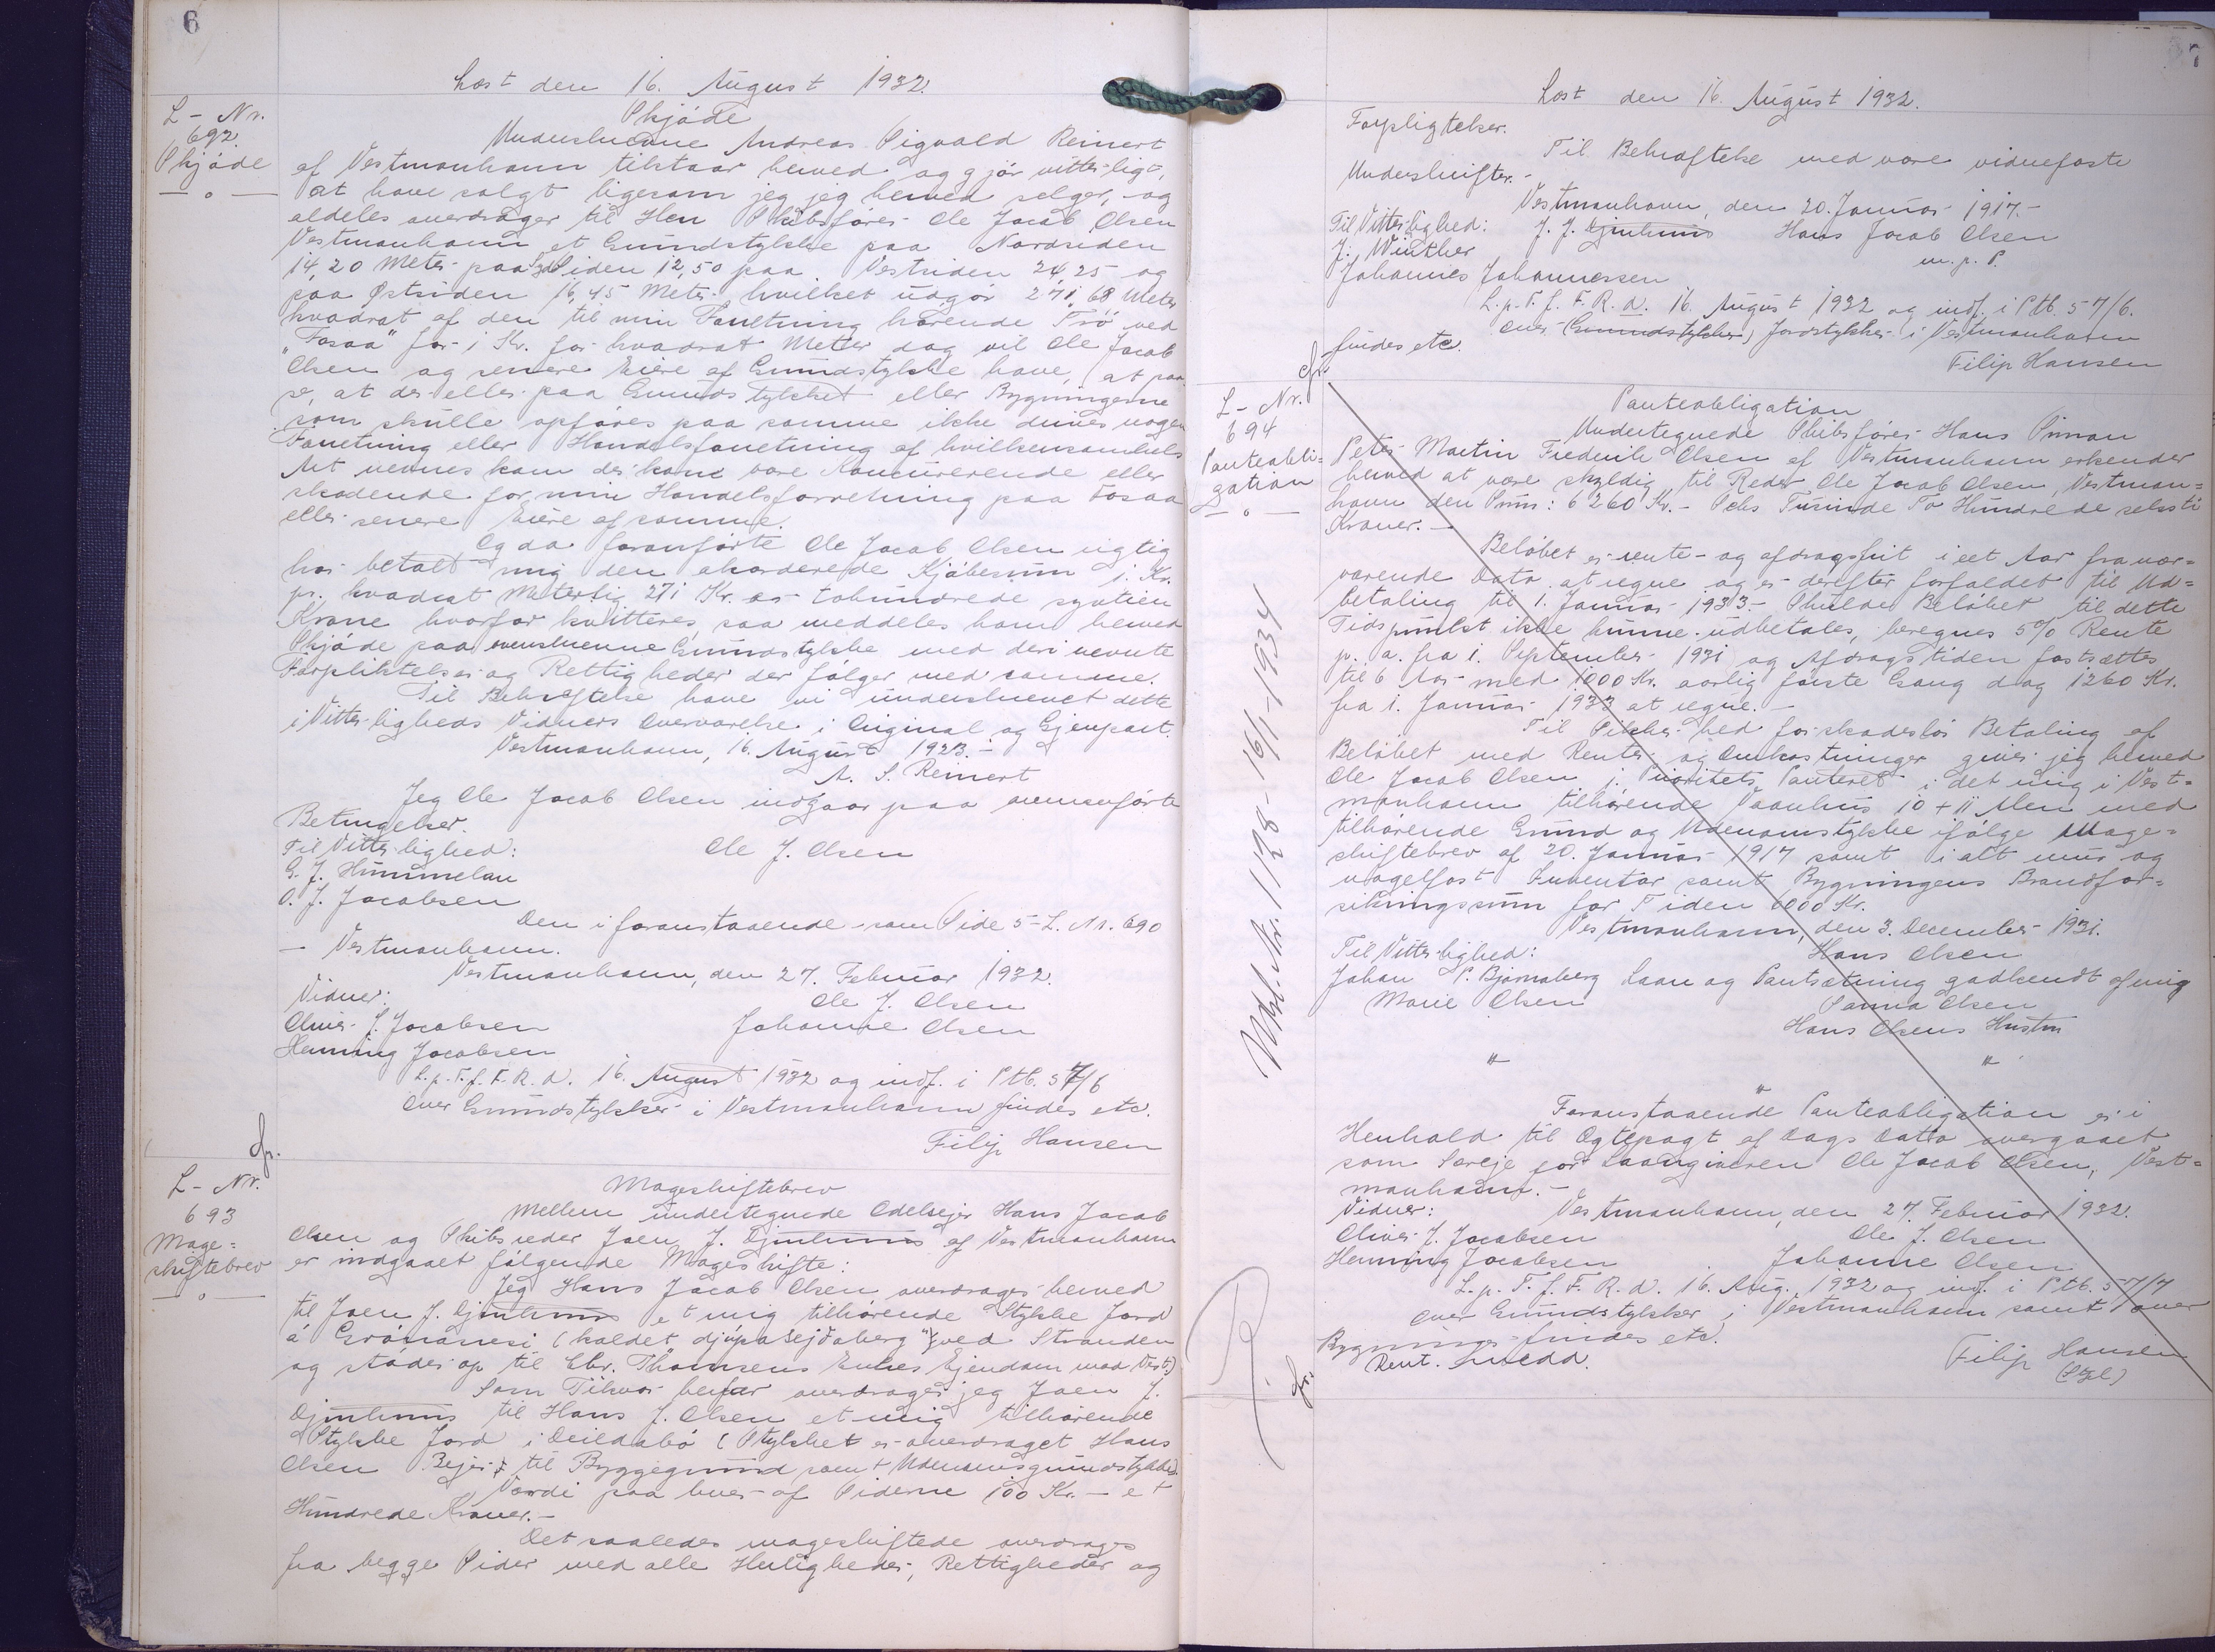 6
Læst den 16. August 1932.
L-Nr.
692.
Skjöde
— " —
Skjöde
Underskrevne Andreas Sigvald Reinert
af Vestmanhavn tilstaar herved og gjör vitterligt,
at have solgt ligesom jeg jeg herved selger, og
aldeles overdrager til Hen Skibsförer Ole Jacob Olsen
Vestmanhavn et Grundstykke paa Nordsiden
14,20 Meter paa Sydsiden 12,50 paa Vestsiden 24 25 og
paa Østsiden 16,45 Meter, hvilket udgör 271,68 Meter
kvadrat af den til min Forretning hörende Trö ved
"Fosaa" for 1 Kr. for kvadrat Meter dog vil Ole Jacob
Olsen og senere Eiere af Grundstykke have, at paa-
se, at der eller paa Grundstykket eller Bygningerne
som skulle opföres paa samme ikke drives nogen
Forretning eller Handelsforretning af hvilkensomhels
Art nevnes kan der kan være Koncurerende eller
skadende for min Handelsforretning paa Fosaa
eller senere Eiere af samme.
Og da foranförte Ole Jacob Olsen rigtig
har betalt mig den akorderede Kjöbesum 1. Kr.
pr. kvadrat Meterlig 271 Kr. er tohundrede syvtien
Krone hvorfor kvitteres, saa meddeles ham herved
Skjöde paa ovenskrevne Grundstykke med deri nevnte
Forpliktelser og Rettigheder der fölger med samme.
Til Bekræftelse have vi underskrevet dette
i Vitterligheds Vidners Overværelse i Original og Gjenpart.
Vestmanhavn, 16. August 1923.-
A. S. Reinert
Jeg Ole Jacob Olsen indgaar paa ovenanförte
Betingelser.
Til Vitterlighed: Ole J. Olsen
G. J. Hummelan
O. J. Jacobsen
Den i foranstaaende - som Side 5 - L. Nr. 690
— Vestmanhavn.
Vestmanhavn, den 27. Februar 1932.
Vidner: Ole J. Olsen
Oliver J. Jacobsen Johanne Olsen
Henning Jacobsen
L.p.T.f.F.R.D. 16. August 1932 og indf. i Ptb. 57/6
Over Grundstykker i Vestmanhavn findes etc.
Filip Hansen
cfr.
L-Nr.
693
Mage=
skiftebrev
— " —
Mageskiftebrev
Mellem undertegnede Odelsejer Hans Jacob
Olsen og Skibsreder Joen J. Djurhuus af Vestmanhavn
er indgaaet fölgende Mageskifte:
Jeg Hans Jacob Olsen overdrager herved
til Joen J. Djurhuus et mig tilhörende Stykke Jord
á Grómanesi (kaldet djúpaSejðaberg") ved Stranden
og stöder op til Chr. Thomsens Enkes Ejendom mod Vest.)
Som Tilsvar herfor overdrager jeg Joen J.
Djurhuus til Hans J. Olsen et mig tilhörende
Stykke Jord i Deildabö (Stykket er overdraget Hans
Olsen Bejer) til Byggegrund samt Udenomsgrundstykke.
Værdi paa hver af Siderne 100 Kr. - et
Hundrede Kroner.-
Det saaledes mageskiftede overdrages
fra begge Sider med alle Herligheder, Rettigheder og
7
Læst den 16. August 1932.
Forpligtelser.
Til Bekræftelse med vore vidnefaste
Underskrifter.-
Vestmanhavn, den 20. Januar 1917.-
Til Vitterlighed: J. J. Djurhuus Hans Jacob Olsen
J. Winther m. p. P.
Johannes Johannessen
L.p.T.f.F.R.D. 16. August 1932 og indf. i Ptb. 57/6.
Over (Grundstykker) Jordstykker i Vestmanhavn
findes etc.
Filip Hansen
cfr.
L-Nr.
694
Panteobli=
gation
— " —
Panteobligation
Undertegnede Skibsförer Hans Simon
Peter Martin Frederik Olsen af Vestmanhavn erkender
herved at være skyldig til Reder Ole Jacob Olsen, Vestman=
havn den Sum: 6260 Kr. - Seks Tusinde To Hundrede seksti
Kroner.-
Belöbet er rente- og afdragsfrit i eet Aar fra nær=
værende Dato at regne og er derefter forfaldet til Ud=
betaling til 1. Januar 1933.- Skulde Belöbet til dette
Tidspunkt ikke kunne udbetales, beregnes 5% Rente
p. a. fra 1. September 1931 og Afdragstiden fastsættes
til 6 Aar med 1000 Kr. aarlig förste Gang dog 1260 Kr.
fra 1. Januar 1933 at regne.-
Til Sikkerhed for skadeslös Betaling af
Belöbet med Renter og Omkostninger giver jeg herved
Ole Jacob Olsen 1. Prioritets Panteret i det mig i Vest=
manhavn tilhörende Vaanhus 10 + 11 Alen med
tilhörende Grund og Udenomstykke ifölge Mage=
skiftebrev af 20. Januar 1917 samt i alt mur og
nagelfast Inventar samt Bygningens Brandfor=
sikringssum for Tiden 6000 Kr.
Vestmanhavn, den 3. December 1931.
Til Vitterlighed: Hans Olsen
Johan P. Bjørnaberg Laan og Pantsætning godkendt af mig
Marie Olsen Sanna Olsen
Hans Olsens Hustru
" "
"
Foranstaaende Panteobligation er i
Henhold til Ægtepagt af Dags Datto overgaaet
som Særeje for Laangiveren Ole Jacob Olsen, Vest=
manhavn.-
Vidner: Vestmanhavn, den 27. Februar 1932.
Oliver J. Jacobsen Ole J. Olsen
Henning Jacobsen Johanne Olsen
L.p.T.f.F.R.D. 16. Aug. 1932 og indf. i Ptb. 57/7
Over Grundstykker i Vestmanhavn samt over
Bygninger findes etc.
Filip Hansen
(Sgl)
cfr.
Udsl. Nr. 1128 - 16/1-1934